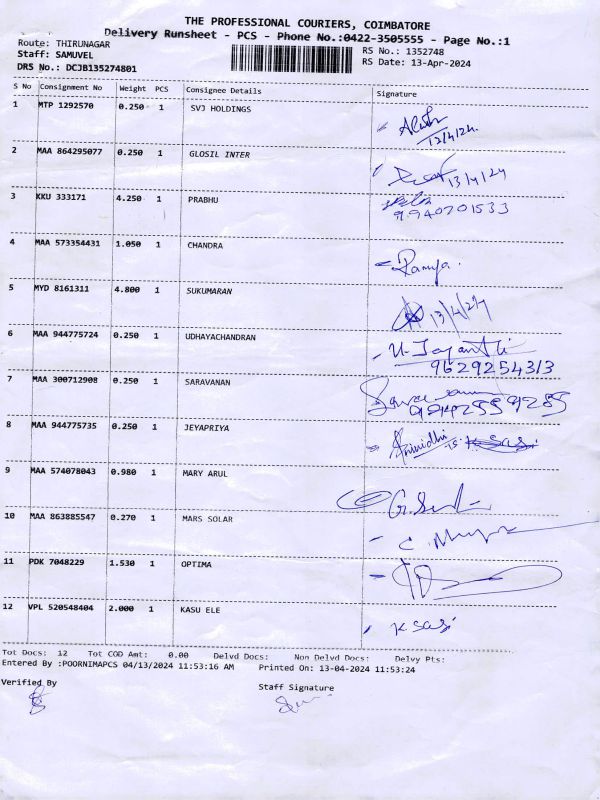 THE PROFESSIONAL COURIERS, COIMBATORE
Delivery Runsheet - PCS - Phone No.:0422-3505555 - Page No.:1
Route: THIRUNAGAR RS No.: 1352748
Staff: SAMUVEL RS Date: 13-Apr-2024
DRS No.: DCJB135274801
S No Consignment No Weight PCS Consignee Details Signature
1 MTP 1292570 0.250 1 SVJ HOLDINGS
13/4/24
2 MAA 864295077 0.250 1 GLOSIL INTER
13/4/24
3 KKU 333171 4.250 1 PRABHU
9940701533
4 MAA 573354431 1.050 1 CHANDRA
Ramya.
5 MYD 8161311 4.800 1 SUKUMARAN
13/4/24
6 MAA 944775724 0.250 1 UDHAYACHANDRAN U. Jayanthi
9629254313
7 MAA 300712908 0.250 1 SARAVANAN
9842559285
8 MAA 944775735 0.250 1 JEYAPRIYA
Srinidhi K Sasi
9 MAA 574078043 0.980 1 MARY ARUL
10 MAA 863885547 0.270 1 MARS SOLAR
11 PDK 7048229 1.530 1 OPTIMA
12 VPL 520548404 2.000 1 KASU ELE
K Sasi
Tot Docs: 12 Tot COD Amt: 0.00 Delvd Docs: Non Delvd Docs: Delvy Pts:
Entered By :POORNIMAPCS 04/13/2024 11:53:16 AM Printed On: 13-04-2024 11:53:24
Verified By Staff Signature